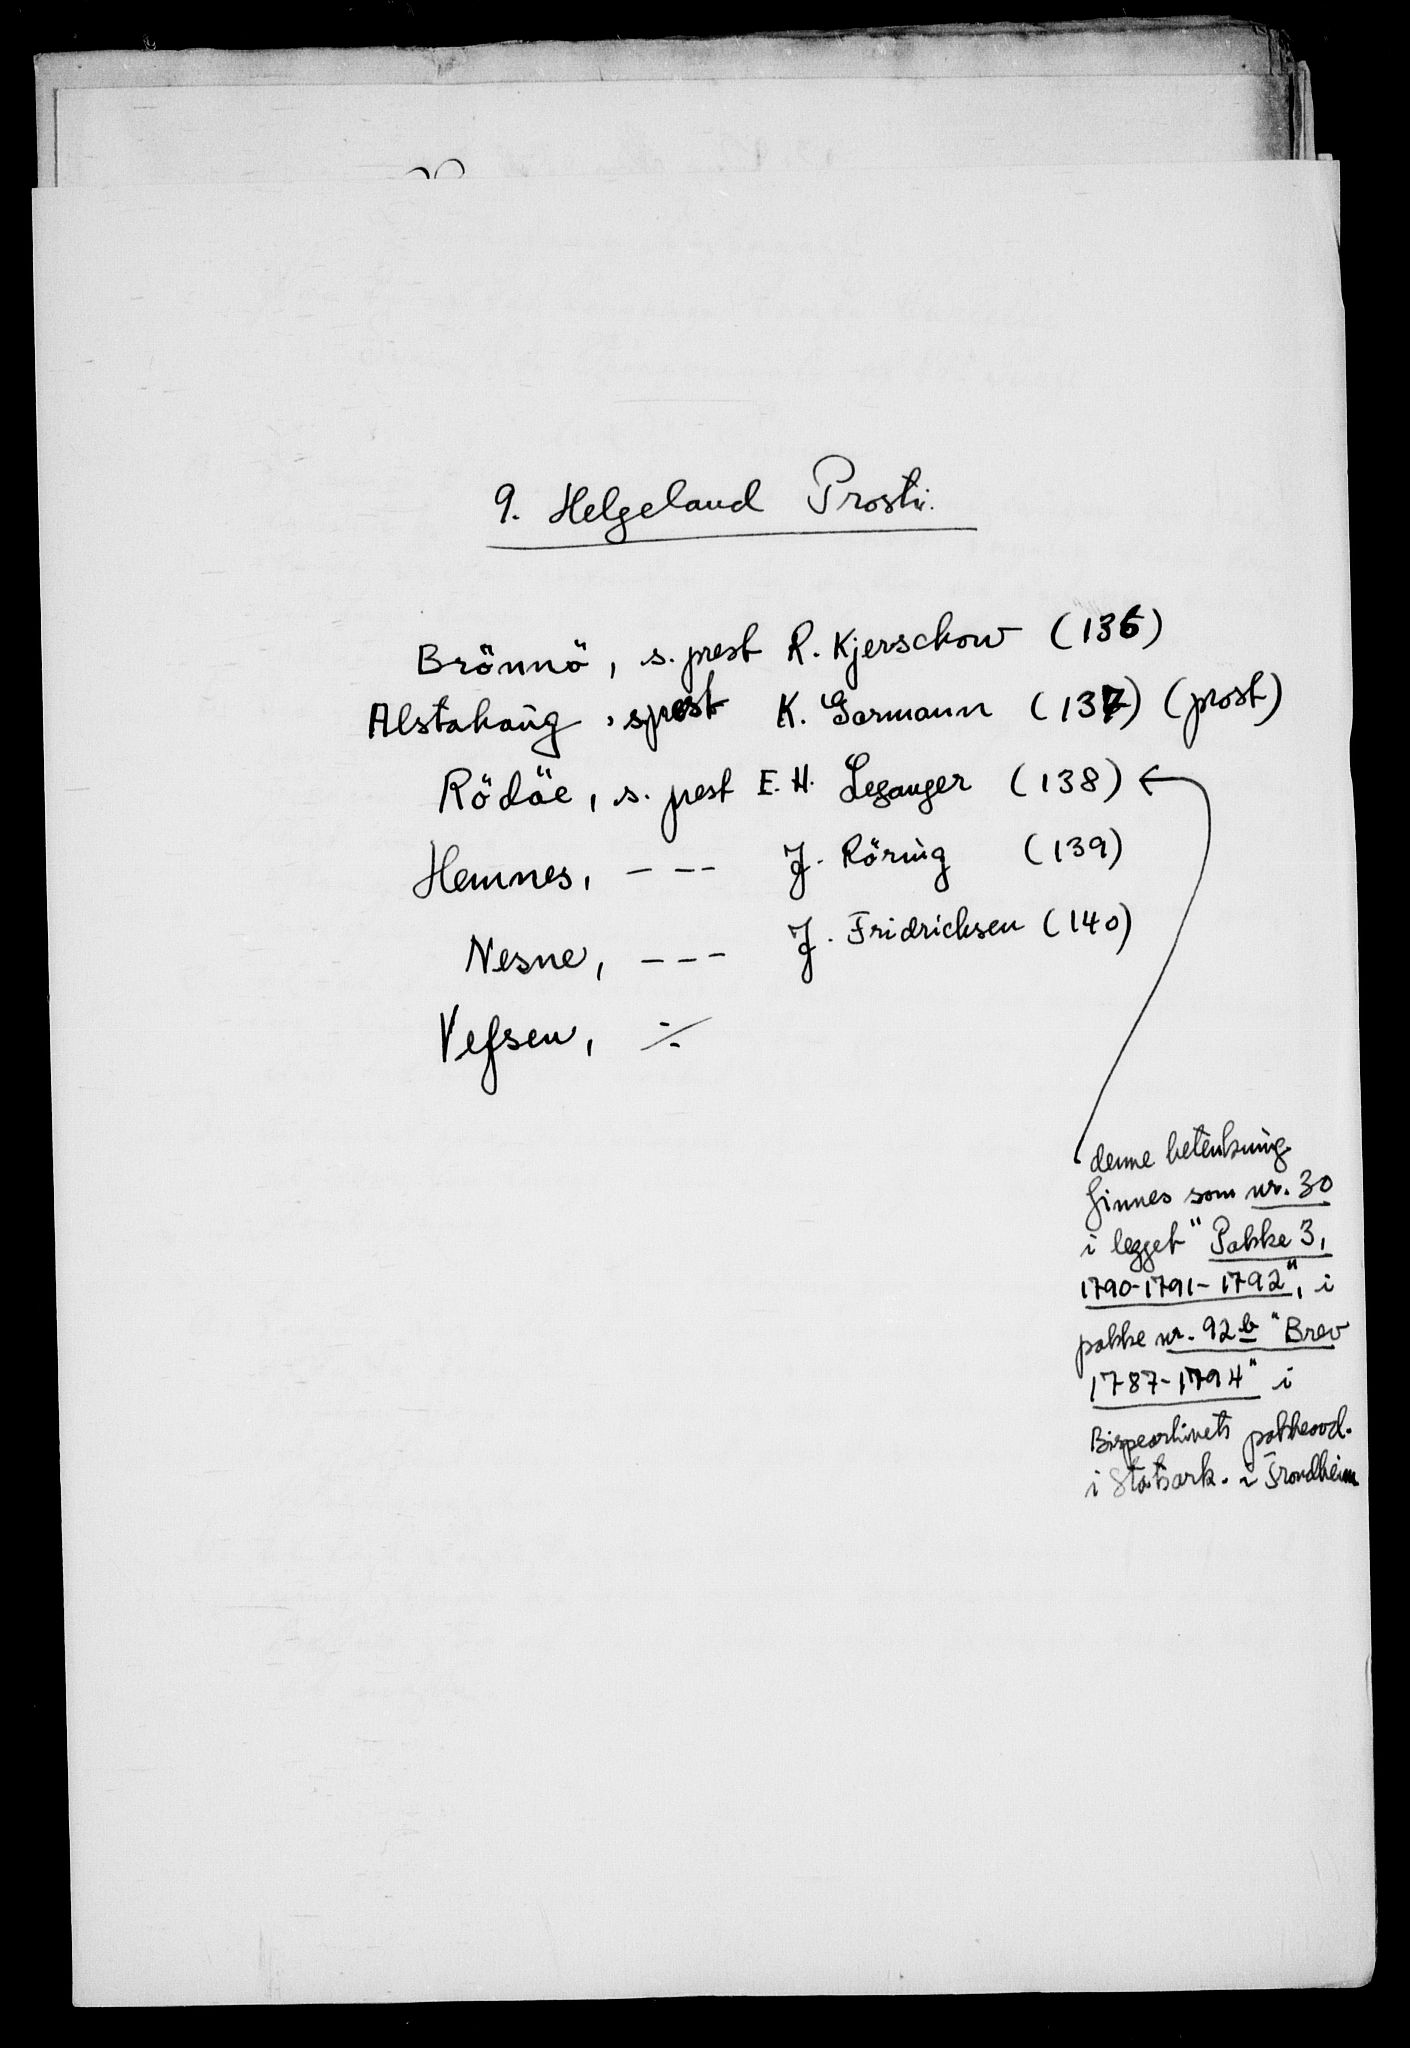 9. Helgeland Prosti.
Brönnö, s. prest R. Kjerschow (136)
Alstahaug, s prest K. Garmann (137) (prost)
Rödöe, s. prest E. H. Leganger (138)
Hemnes, - - - J. Röring (139)
Nesne, - - - J. Fridrichsen (140)
Vefsen, ÷
denne betenkning
finnes som nr. 30
i legget "Pakke 3,
1790-1791-1792", i
pakke nr. 92 b "Brev
1787-1794" i
Bispearkivets pakkeavd.
i Statsark. i Trondheim